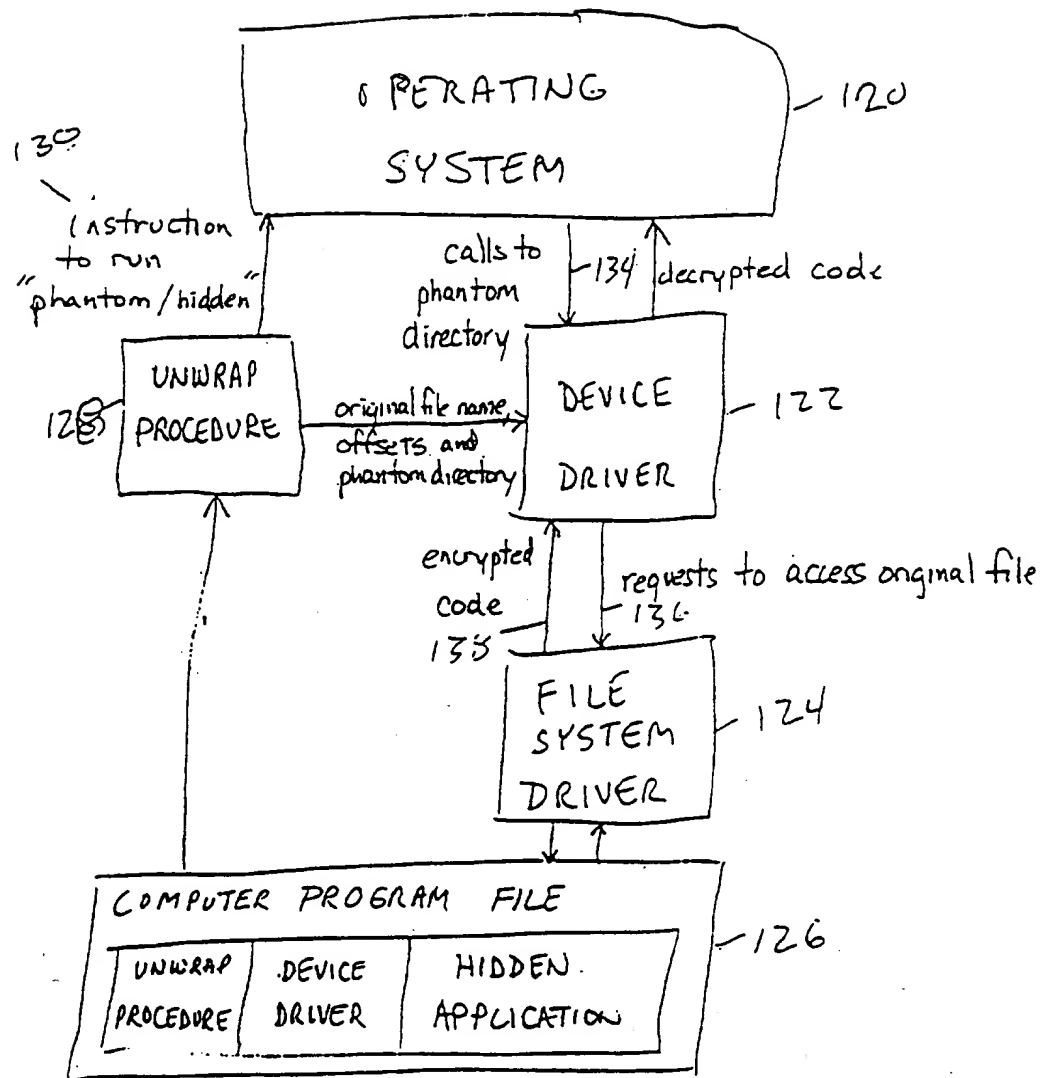 OPERATING
SYSTEM
120
130
instruction
to run
"phantom/hidden"
calls to
phantom
directory
134
decrypted code
UNWRAP
PROCEDURE
original file name,
offsets and
phantom directory
DEVICE
DRIVER
122
encrypted
code
138
requests to access original file
136
FILE
SYSTEM
DRIVER
124
COMPUTER PROGRAM FILE
UNWRAP
PROCEDURE
DEVICE
DRIVER
HIDDEN
APPLICATION
126